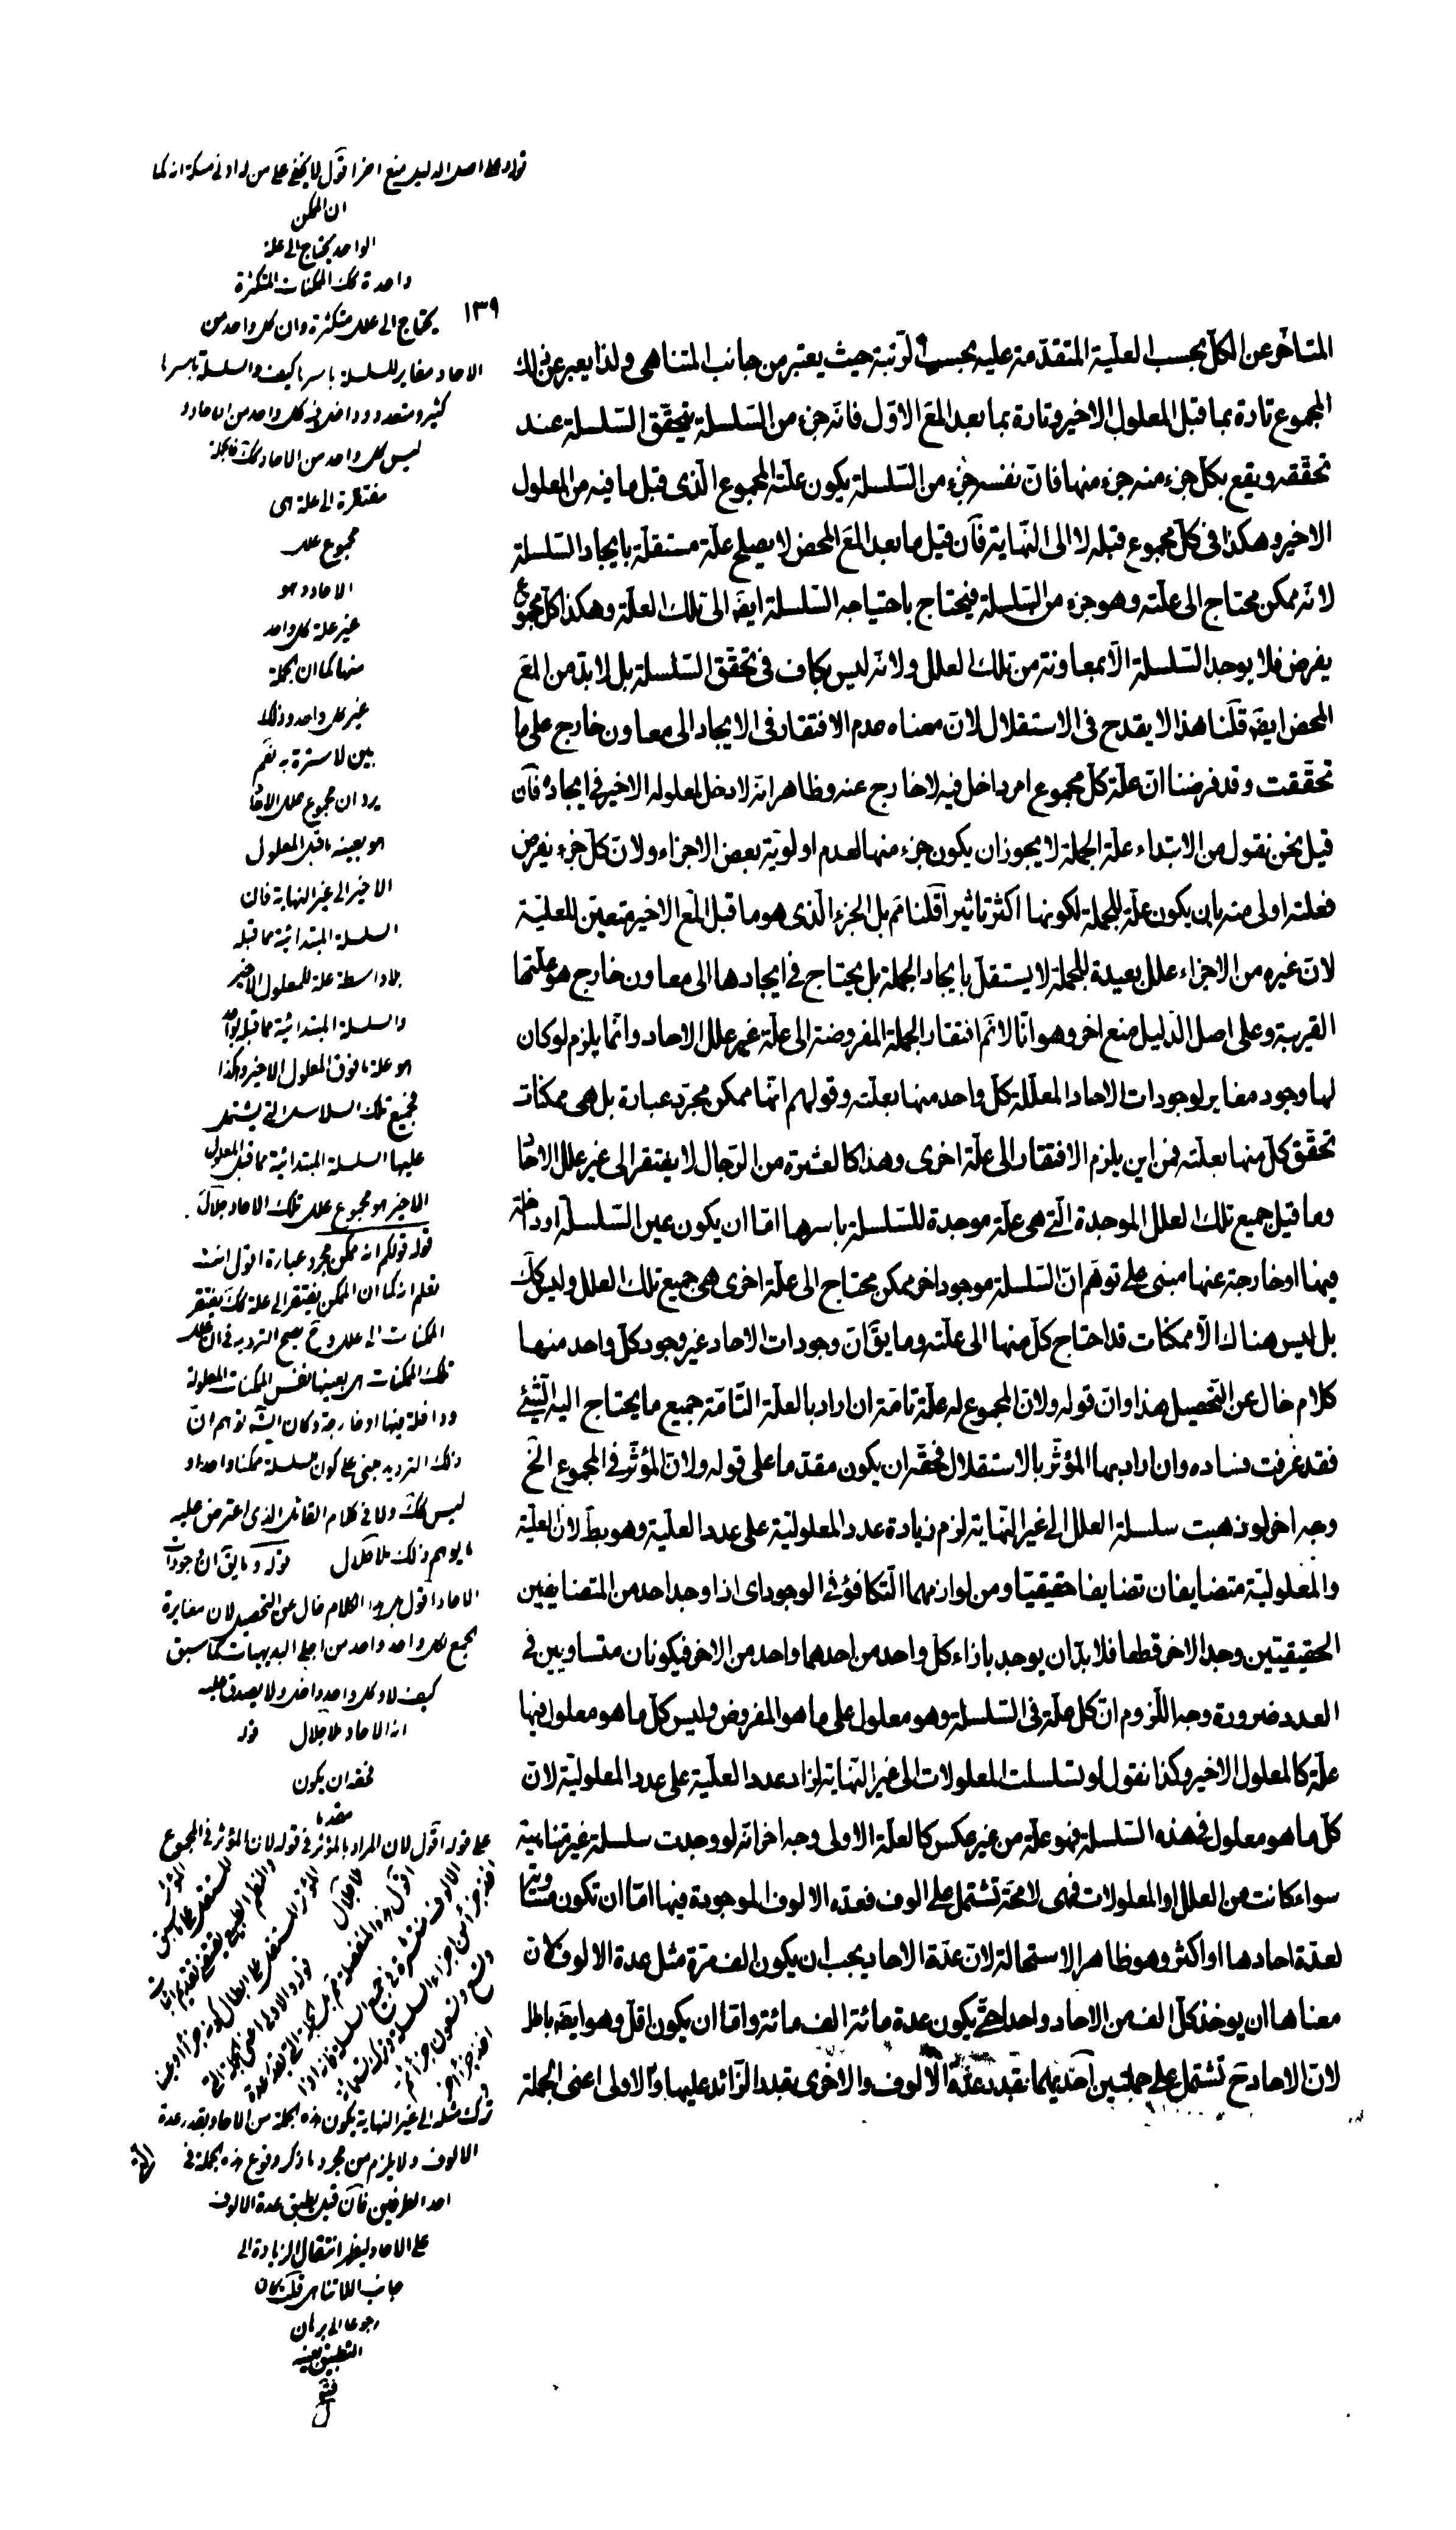 ١٣٩
المتأخر عن الكل بحسب العلية المتقدمة عليه بحسب الرتبة حيث يعتبر من جانب المتناهى ولذا يعبر عن ذلك
المجموع تارة بما قبل المعلول الاخير وتارة بما بعد المع الاول فانه جزء من السلسلة يتحقق السلسلة عند
تحققه ويقع بكل جزء منه جزء منها فان نفسه جزء من السلسلة يكون علة المجموع الذى قبل ما فيه من المعلول
الاخير وهكذا فى كل مجموع قبله لا الى النهاية فآن قيل ما بعد المع المحض لا يصلح علة مستقلة بايجاد السلسلة
لانه ممكن محتاج الى علته وهو جزء من السلسلة فيحتاج باحتياجه السلسلة ايضا الى تلك العلة وهكذا كل مجموع
يفرض فلا يوجد السلسلة الا بمعاونة من تلك العلل ولانه ليس بكاف فى تحقق السلسلة بل لا بد من المع
المحض ايضا قلنا هذا لا يقدح فى الاستقلال لان معناه عدم الافتقار فى الايجاد الى معاون خارج على ما
تحققت وقد فرضنا ان علة كل مجموع امر داخل فيه لا خارج عنه وظاهر انه لا دخل لمعلوله الاخير فى ايجاده فآن
قيل نحن نقول من الابتداء علة الجملة لا يجوز ان يكون جزء منها لعدم اولوية بعض الاجزاء ولان كل جزء يفرض
فعلته اولى منه بان يكون علة للجملة لكونها اكثر تاثيرا قلنا تم بل الجزء الذى هو ما قبل المع الاخير متعين للعلية
لان غيره من الاجزاء علل بعيدة للجملة لا يستقل بايجاد الجملة بل يحتاج فى ايجادها الى معاون خارج هو علتها
القريبة وعلى اصل الدليل منع اخر وهو انا لا نم افتقار الجملة المفروضة الى علة غير علل الاحاد وانما يلزم لو كان
لها وجود مغاير لوجودات الاحاد المعللة كل واحد منها بعلته وقولهم انها ممكن مجرد عبارة بل هى ممكنات
تحقق كل منها بعلته فمن اين يلزم الافتقار الى علة اخرى وهذا كالعشرة من الرجال لا يفتقر الى غير علل الاحاد
وما قيل جميع تلك العلل الموجدة التى هى علة موجدة للسلسلة باسرها اما ان يكون عين السلسلة او داخلة
فيها او خارجة عنها مبنى على توهم ان السلسلة موجود اخر ممكن محتاج الى علة اخرى هى جميع تلك العلل وليس كك
بل ليس هناك الا ممكنات قد احتاج كل منها الى علته وما يق ان وجودات الاحاد غير وجود كل واحد منها
كلام خال عن التحصيل هذا وان قوله ولان المجموع له علة تامة ان اراد بالعلة التامة جميع ما يحتاج اليه الشئ
فقد عرفت فساده وان اراد بها المؤثر بالاستقلال فحقه ان يكون مقدما على قوله ولان المؤثر فى المجموع الخ
وجه اخر لو ذهبت سلسلة العلل الى غير النهاية لزم زيادة عدد المعلولية على عدد العلية وهو بط لان العلية
والمعلولية متضايفان تضايفا حقيقيا ومن لوازمهما التكافؤ فى الوجود اى اذا وجد احد من المتضايفين
الحقيقيتين وجد الاخر قطعا فلا بد ان يوجد بازاء كل واحد من احدهما واحد من الاخر فيكونان متساويين فى
العدد ضرورة وجه اللزوم ان كل علة فى السلسلة وهو معلول على ما هو المفروض وليس كل ما هو معلول فيها
علة كالمعلول الاخير وكذا نقول لو تسلسلت المعلولات الى غير النهاية لزاد عدد العلية على عدد المعلولية لان
كل ما هو معلول فى هذه السلسلة فهو علة من غير عكس كالعلة الاولى وجه اخر انه لو وجدت سلسلة غير متناهية
سواء كانت من العلل او المعلولات فهى لا محة تشتمل على الوف فعدة الالوف الموجودة فيها اما ان تكون متساوية
لعدة احادها او اكثر وهو ظاهر الاستحالة لان عدة الاحاد يجب ان يكون الف مرة مثل عدة الالوف لان
معناها ان يوخذ كل الف من الاحاد واحدا حتى يكون عدة مائة الف مائة واما ان يكون اقل وهو ايضا باطل
لان الاحاد ح تشتمل على جملتين احديهما بقدر عدة الالوف والاخرى بقدر الزائد عليها والاولى اعنى الجملة
قوله وعلى اصل الدليل منع اخر اقول لا يخفى على من له ادنى مسكة انه كما
ان الممكن
الواحد يحتاج الى علة
واحدة كك الممكنات المتكثرة
يحتاج الى علل متكثرة وان كل واحد من
الاحاد مغاير للسلسلة باسرها كيف والسلسلة باسرها
كثير ومتعدد وداخل فيه كل واحد من الاحاد و
ليس كل واحد من الاحاد كك فالجملة
مفتقرة الى علة هى
مجموع علل
الاحاد وهو
غير علة كل واحد
منها كما ان الجملة
غير كل واحد وذلك
بين لا سترة به نعم
يرد ان مجموع علل الاحاد
هو بعينه ما قبل المعلول
الاخير الى غير النهاية فان
السلسلة المبتدائية مما قبله
بلا واسطة علة للمعلول الاخير
والسلسلة المبتدائية مما قبله بواحد
هو علة ما فوق المعلول الاخير وهكذا
فجميع تلك السلاسل التى يشتمل
عليها السلسلة المبتدائية مما قبل المعلول
الاخير هو مجموع علل تلك الاحاد جلال
قوله قولكم انه ممكن مجرد عبارة اقول انت
تعلم انه كما ان الممكن يفتقر الى علة كك يفتقر
الممكنات الى علل وح يصح الترديد فى ان علل
تلك الممكنات هى بعينها نفس الممكنات المعلولة
وداخلة فيها او خارجة وكان الش توهم ان
ذلك الترديد مبنى على كون السلسلة ممكنا واحدا و
ليس كك ولا فى كلام القائل الذى اعترض عليه
ما يوهم ذلك ملا جلال قوله وما يق ان وجودات
الاحاد اقول هذا الكلام خال عن التحصيل لان مغايرة
الجمع لكل واحد واحد من اجلى البديهيات كما سبق
كيف لا وكل واحد داخل ولا يصدق عليه
انه الاحاد ملا جلال قوله
فحقه ان يكون
مقدما
على قوله اقول لان المراد بالمؤثر فى قوله لان المؤثر فى المجموع
ترك مثله الى غير النهاية يكون هذه الجملة من الاحاد بقدر عدة
الالوف ولا يلزم من مجرد ما ذكر وقوع هذه الجملة فى
احد الطرفين فآن قيل يطبق عدة الالوف
على الاحاد ليظهر انتقال الزيادة الى
جانب اللاتناهى قلت كان
رجوعا الى برهان
التطبيق بعينه